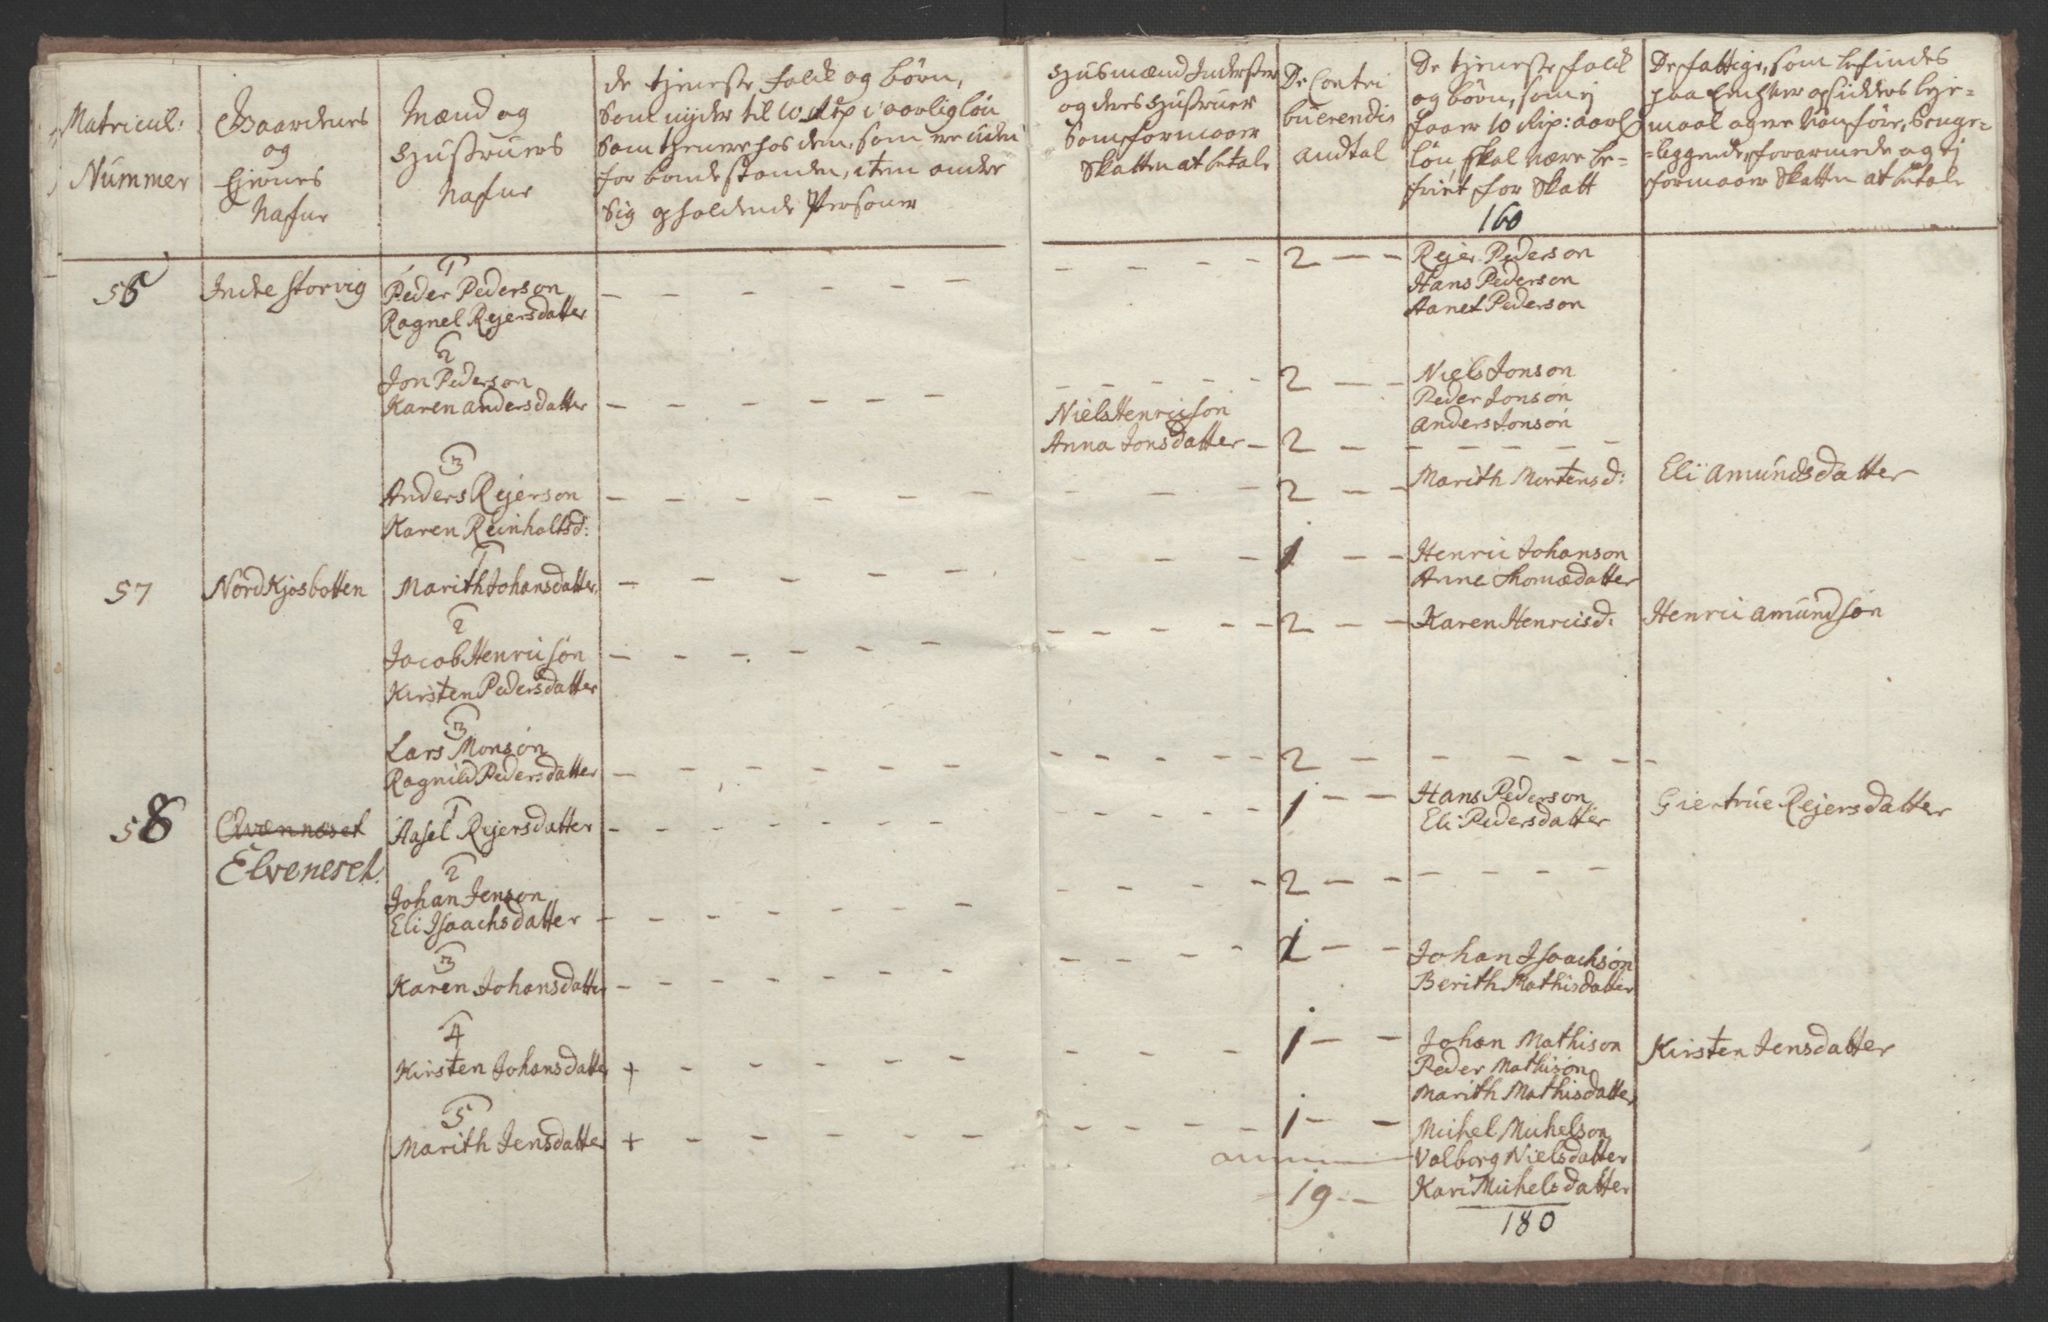 Matricul:
Nummer
Gaardenes
og
Ejernes
Nafne
Mænd og
Hustruers
Nafne
de tjeneste folck og børn,
Som nyder til 10 Rdr i aarlig løn
Samt tjenere hos dem, som ere uden
for bondestanden, item andre
Sig opholdende Personer
Husmænd Inderster
og deres Hustruer
Som formaaer
Skatten at betale
De Contri
buerendis
Andtal
De tjeneste folck
og børn, som ej
faaer 10 Rdr: aarl
løn skal være be-
friet for Skatt
160
De fattige, som befindes
paa Enhver opsidders leje-
maal og ere Vanføre, Senge-
-liggende, forarmede og ej
formaaer Skatten at betale
56
Indre Storvig
1
Peder Pederson
Ragnel Rejersdatter
2
Rejer Pederson
Hans Pederson
Hanet Pederson
2
Jon Pederson
Karen andersdatter
2
Niels Jonson
Peder Jonson
Anders Jonson
Niels Henricson
Anna Jonsdatter
2
3
Anders Rejerson
Karen Reinholtsd:
2
Marith Mortensd:
Eli Amundsdatter
57
Nordkjosbotten
1
Marith Johansdatter
1
Henric Johanson
Anne Thomædatter
2
Jacob Henricson
Kirsten Pedersdatter
2
Karen Henricsd:
Henric Amundson
3
Lars Monson
Ragnild Pedersdatter
2
58
Elvennæset
Elveneset.
1
Aasel Rejersdatter
1
Hans Pederson
Eli Pedersdatter
Giertrue Rejersdatter
2
Johan Jenson
Eli Isaachsdatter
2
3
Karen Johansdatter
1
Johan Isaachson
Berith Mathisdatter
4
Kirsten Johansdatter +
1
Johan Mathison
Peder Mathison
Marith Mathisdatter
Kirsten Jensdatter
5
Marith Jensdatter +
1
Michel Michelson
Valborg Nielsdatter
Kari Michelsdatter
19
180